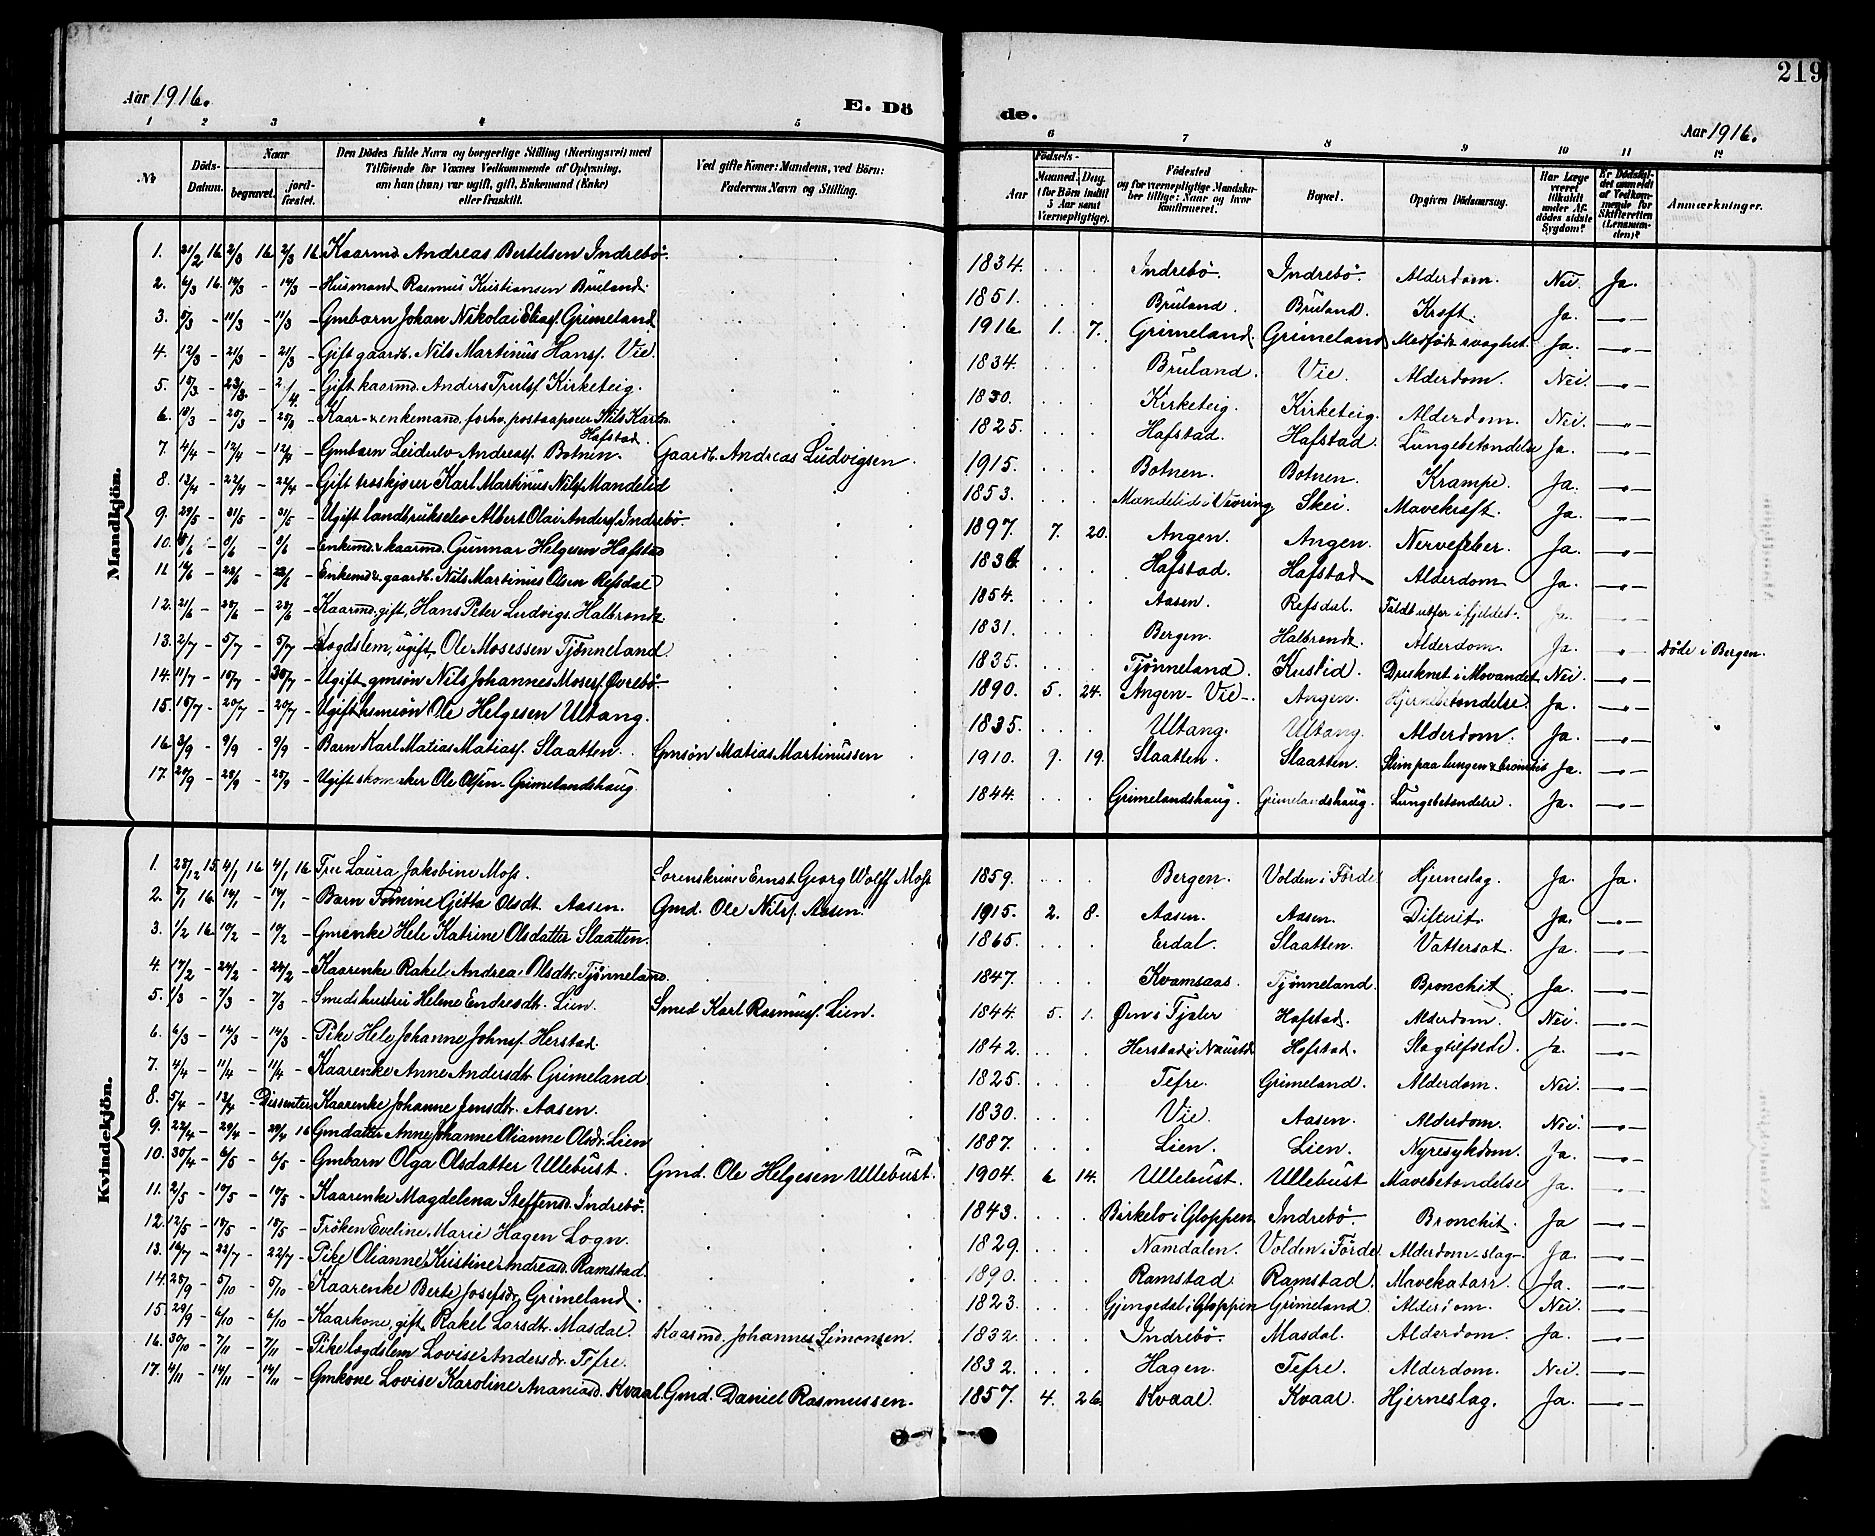 219
Aar 1916.
E. Dö
de.
Aar 1916.
1 2 3 4 5 6 7 8 9 10 11 12
№ Döds-Datum. Naar begravet. jord-fæstet. Den Dödes fulde Navn og borgerlige Stilling (Næringsvei) med Tilföiende for Voxnes Vedkommende af Oplysning, om han (hun) var ugift, gift, Enkemand (Enke) eller fraskilt. Ved gifte Koner: Mandens, ved Börn: Faderens Navn og Stilling. Födsels- Aar Maaned. Dag. (for Börn indtil 5 Aar samt Værnepligtige). Födested og for værnepligtige Mandskaber tillige: Naar og hvor konfirmeret. Bopæl. Opgiven Dödsaarsag. Har Læge været tilkaldt under Afdödes sidste Sygdom? Er Dödsfaldet anmeldt af Vedkommende for Skifteretten (Lensmanden)? Anmærkninger.
Mandkjön.
1. 21/2 16 2/3 16 2/3 16 Kaarmd. Andreas Bertelsen Indrebö. 1834. Indrebö. Indrebö. Alderdom. Nei. Ja.
2. 6/3 16. 14/3 - 14/3 - Husmand Rasmus Kristiansen Bruland. 1851. Bruland. Bruland. Kræft. Ja. -"-
3. 5/3 - 11/3 - 11/3 - Gmbarn Johan Nikolai Eliasf. Grimeland 1916 1. 7. Grimeland. Grimeland Medfödt svaghet. Ja. -"-
4. 12/3 - 21/3 - 21/3 - Gift gaardb. Nils Martinus Hansf. Vie. 1834. Bruland. Vie. Alderdom. Nei. -"-
5. 15/3 - 23/3 - 2/4 - Gift kaarmd. Anders Trulsf. Kirketeig. 1830. Kirketeig. Kirketeig. Alderdom. Nei. -"-
6. 18/3 - 25/3 - 25/3 - Kaar- & enkemand, forhv. postaapner Nils Karls. Hafstad. 1825. Hafstad. Hafstad. Lungebetændelse Ja. -"-
7. 4/4 - 12/4 - 12/4 - Gmbarn Leidulv Andreasf. Botnen. Gaardb. Andreas Ludvigsen. 1915. Botnen. Botnen. Krampe. Ja. -"-
8. 13/4 - 22/4 - 22/4 - Gift træskjærer Karl Martinus Nilsf. Mandelid 1853. Mandelid i Vevring Skei. Mavekræft. Ja. -"-
9. 23/5 - 31/5 - 31/5 - Ugift landbrukselev Albert Olai Andersf. Indrebö. 1897. 7. 20. Angen. Angen. Nervefeber. Ja. -"-
10. 5/6 - 9/6 - 9/6 - Enkemd. & kaarmd. Gunnar Helgesen Hafstad 1836. Hafstad. Hafstad Alderdom Ja. -"-
11. 14/6 - 22/6 - 22/6 - Enkemd. & gaardb. Nils Martinus Olsen Refsdal 1854. Aasen. Refsdal. Faldt utfor i fjeldet. Ja. -"-
12. 21/6 - 28/6 - 28/6 - Kaarmd, gift, Hans Peter Ludvigs. Halbrendt. 1831. Bergen. Halbrendt. Alderdom. Ja. -"- Döde i Bergen.
13. 2/7 - 5/7 - 5/7 - Lægdslem, ugift, Ole Mosessen Tjönneland. 1835. Tjönneland. Kuslid. Druknet i Movandet Nei. -"-
14. 11/7 - 15/7 - 30/7 - Ugift gmsön Nils Johannes Mosesf. Övrebö. 1890. 5. 24. Angen - Vie -. Angen. Hjernebetændelse. Ja. -"-
15. 15/7 - 20/7 - 20/7 - Ugift Ole Helgesen Ultang. 1835. Ultang. Ultang. Alderdom. Ja. -"-
16. 3/9 - 9/9 - 9/9 - Barn Karl Matias Matiasf. Slaatten. Gmsön Matias Martinussen 1910. 9. 19. Slaatten. Slaatten. Slim paa lungen & bronchit Ja. -"-
17. 20/9 - 28/9 - 28/9 - Ugift skomaker Ole Olsen. Grimelandshaug. 1844. Grimelandshaug. Grimelandshaug. Lungebetændelse. Ja. -"-
Kvindekjön.
1. 28/12 15. 4/1 16 4/1 16 Fru Laura Jakobine Moss. Sorenskriver Ernst Georg Wolff Moss 1859. Bergen. Volden i Förde Hjerneslag. Ja. Ja.
2. 9/1 16. 14/1 - 14/1 - Barn Tomine Gitta Olsdt. Aasen. Gmd. Ole Nilsf. Aasen. 1915. 2. 8. Aasen. Aasen. Difterit. Ja. -"-
3. 1/2 16 10/2 - 10/2 - Gmenke Hele Katrine Olsdatter Slaatten. 1865. Erdal. Slaatten. Vattersot. Ja. -"-
4. 17/2 - 24/2 - 24/2 - Kaarenke Rakel Andrea Olsdtr. Tjönneland. 1847. Kvamsaas. Tjönneland. Bronchit. Ja. -"-
5. 1/3 - 7/3 - 7/3 - Smedshustru Helene Endresdt. Lien. Smed Karl Rasmusf. Lien. 1844. 5. 1. Øen i Fjaler Hafstad. Alderdom. Nei. -"-
6. 6/3 - 14/3 - 14/3 - Pike Hele Johanne Johnsf. Herstad. 1842. Herstad i Naustd. Hafstad. Slagtilfælde. Ja. -"-
7. 4/4 - 11/4 - 11/4 - Kaarenke Anne Andersdt. Grimeland 1825. Tefre. Grimeland. Alderdom. Nei. -"-
8. 5/4 - 13/4 - Dissenter Kaarenke Johanne Jensdtr. Aasen. 1830. Vie. Aasen. Alderdom. Nei. -"-
9. 22/4 - 29/4 - 29/4 16 Gmdatter Anne Johanne Olianne Olsdr. Lien 1887. Lien. Lien. Nyresykdom. Ja. -"-
10. 30/4 - 6/5 - 6/5 - Gmbarn Olga Olsdatter Ullebust. Gmd. Ole Helgesen Ullebust. 1904. 6 14. Ullebust. Ullebust Mavebetændelse Ja. -"-
11. 2/5 - 10/5 - 10/5 - Kaarenke Magdelena Steffensd. Indrebö. 1843. Birkelo i Gloppen Indrebö. Bronchit. Ja -"-
12. 12/5 - 18/5 - 18/5 - Fröken Eveline Marie Hagen Sogn. 1829. Namdalen. Volden i Förde. Alderdom - slag - Ja. -"-
13. 16/7 - 22/7 - 22/7 - Pike Olianne Kristine Andreasd. Ramstad. 1890. Ramstad. Ramstad. Mavekatarr. Ja. -"-
14. 28/9 - 5/10 - 5/10 - Kaarenke Berte Josefsdr. Grimeland. 1823. Gjengedal i Gloppen Grimeland. Alderdom. Nei. -"-
15. 29/9 - 6/10 - 6/10 - Kaarkone, gift, Rakel Larsdtr. Masdal. Kaarmd. Johannes Simonsen. 1832. Indrebö. Masdal. Alderdom. Ja. -"-
16. 30/10 - 7/11 - 7/11 - Pike lægdslem Lovise Andersdr. Tefre. 1832. Hagen. Tefre. Alderdom. Nei. -"-
17. 4/11 - 14/11 - 14/11 - Gmkone Lovise Karoline Ananiasd. Kvaal. Gmd. Daniel Rasmussen. 1857. 4. 26. Kvaal. Kvaal. Hjerneslag. Ja. -"-